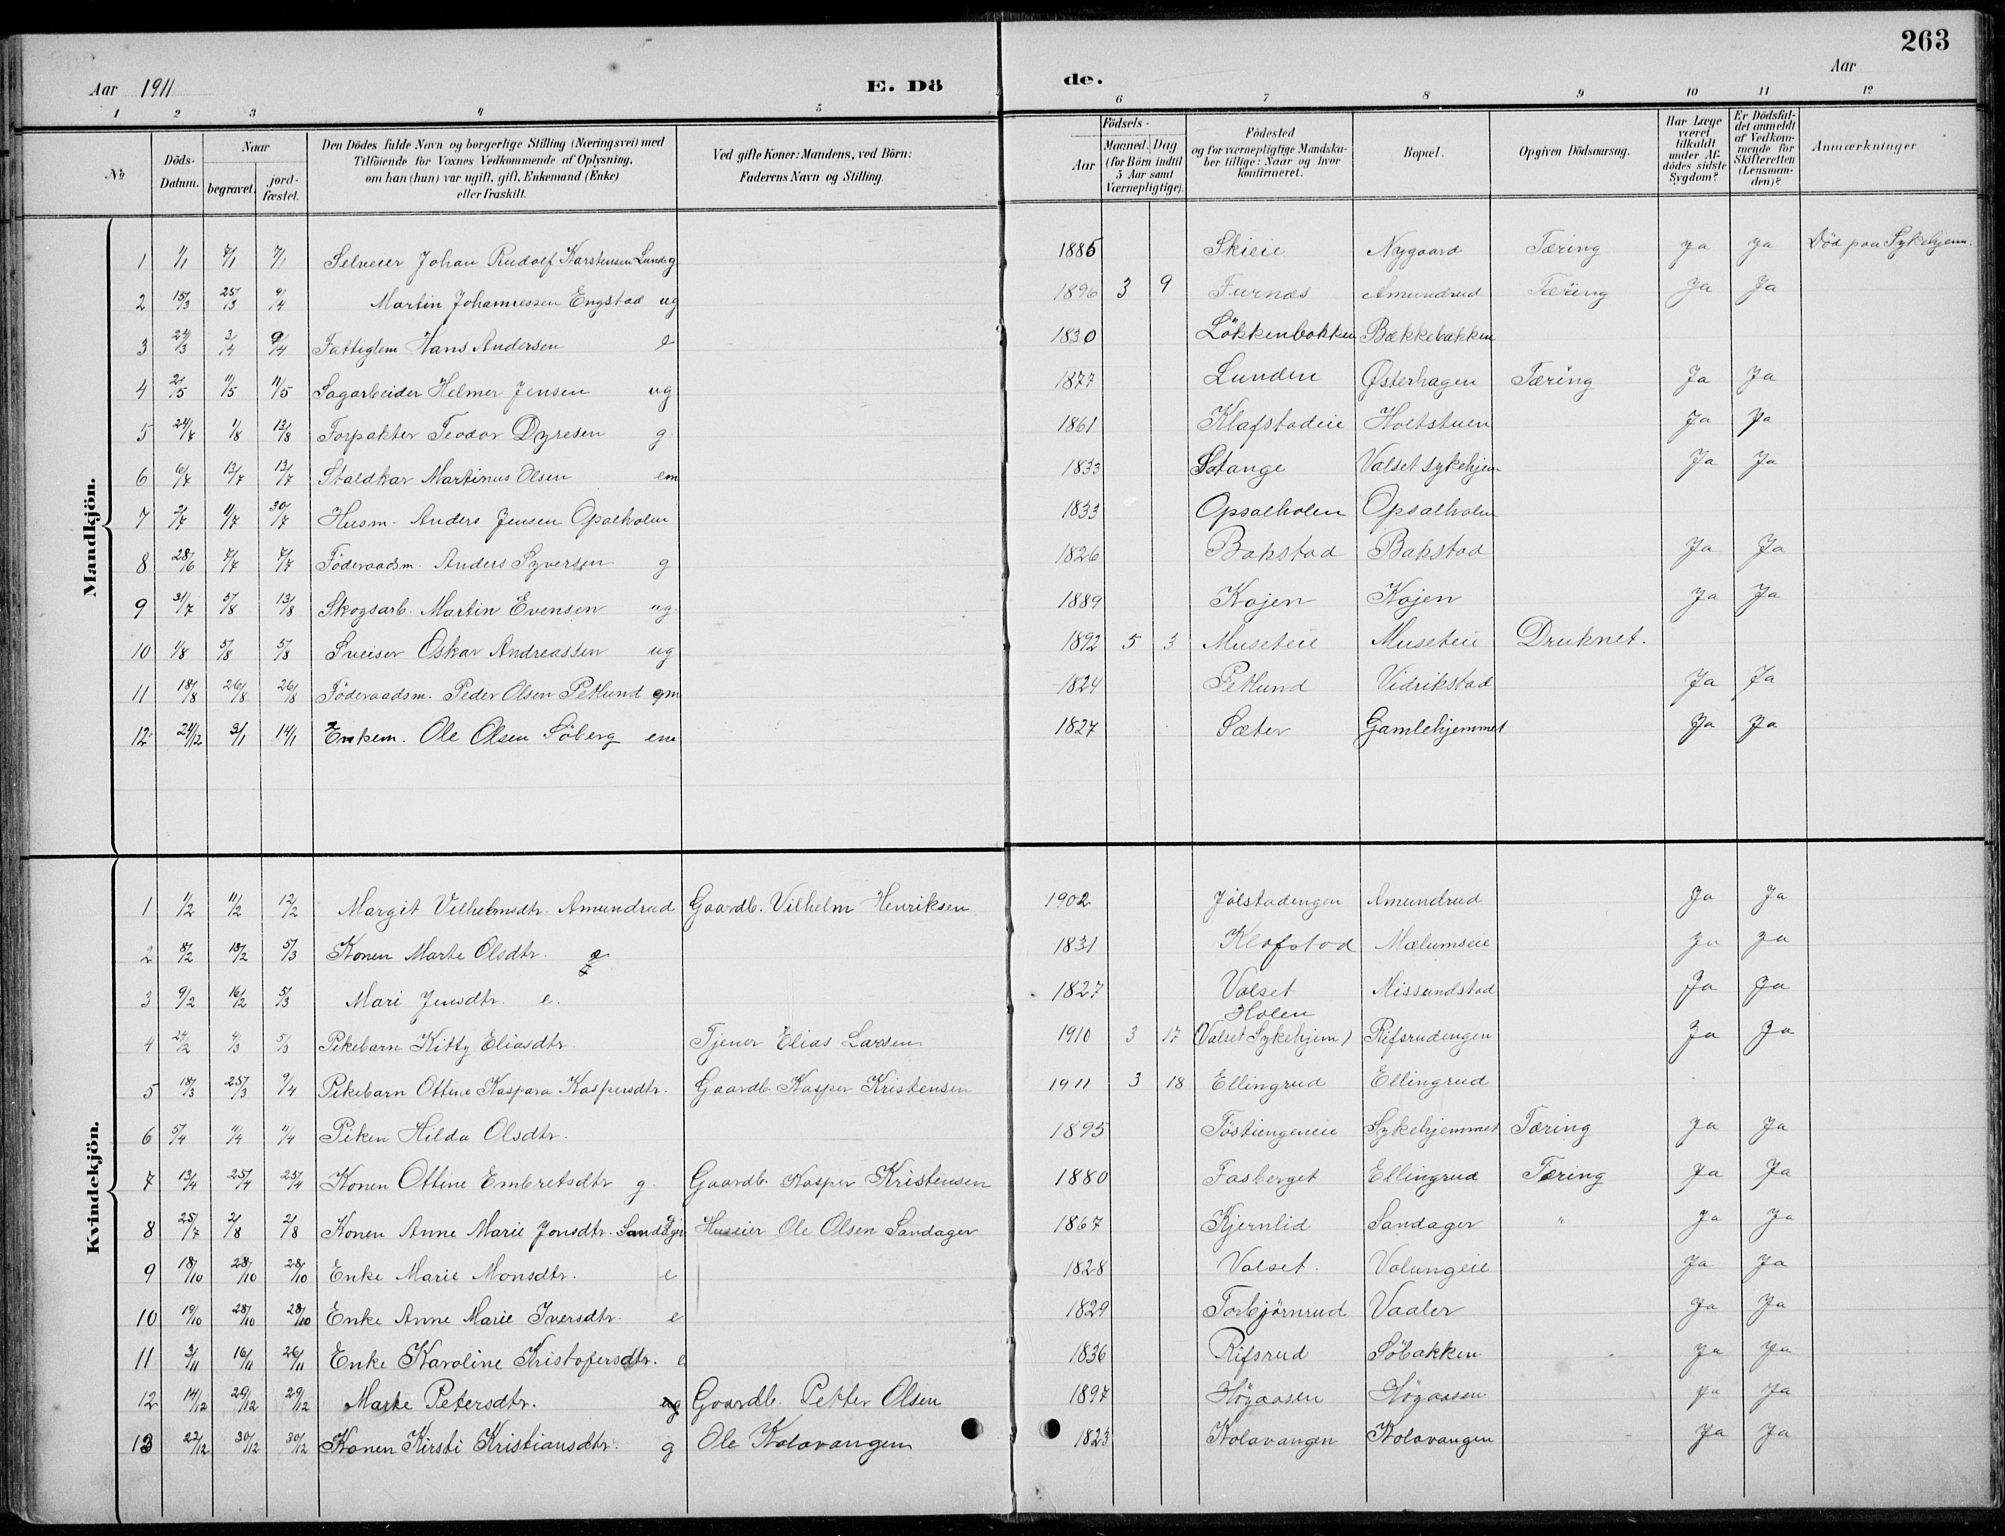 263
Aar 1911 E. Dö de. Aar
1 2 3 4 5 6 7 8 9 10 11 12
No
Döds-Datum.
Naar
begravet. jord-fæstet.
Den Dödes fulde Navn og borgerlige Stilling (Næringsvei) med
Tilföiende for Voxnes Vedkommende af Oplysning,
om han (hun) var ugift, gift, Enkemand (Enke)
eller fraskilt.
Ved gifte Koner: Mandens, ved Börn:
Faderens Navn og Stilling.
Födsels-
Aar
Maaned. Dag
(for Börn indtil
5 Aar samt
Værnepligtige).
Födested
og for værnepligtige Mandska-
ber tillige: Naar og hvor
konfirmeret.
Bopæl.
Opgiven Dödsaarsag.
Har Læge
været
tilkaldt
under Af-
dödes sidste
Sygdom?
Er Dödsfal-
det anmeldt
af Vedkom-
mende for
Skifteretten
(Lensman-
den)?
Anmærkninger.
Mandkjön.
1 1/1 7/1 7/1 Selveier Johan Rudolf Karstensen Lund g 1885 Skieie Nygaard Tæring Ja Ja Död paa Sykehjem.
2 15/3 25/3 9/4 Martin Johannessen Engstad ug 1896 3 9 Furnæs Amundrud Tæring Ja Ja
3 24/3 3/4 9/4 Fattiglem Hans Andersen e 1830 Lökkenbakken Bækkebakken
4 2/5 11/5 11/5 Sagarbeider Helmer Jensen ug 1877 Lunden Østerhagen Tæring Ja Ja
5 24/7 1/8 13/8 Forpakter Teodor Dyresen g 1861 Klafstadeie Holtstuen Ja Ja
6 6/7 13/7 13/7 Staldkar Martinus Olsen em 1833 Stange Valset sykehjem Ja Ja
7 2/7 11/7 30/7 Husm. Anders Jensen Opsalholm 1833 Opsalholen Opsalholm
8 28/6 7/7 7/7 Föderaadsm. Anders Syversen g 1826 Bakstad Bakstad Ja Ja
9 31/7 5/8 13/8 Skogsarb. Martin Evensen ug 1889 Kojen Kojen Ja Ja
10 1/8 5/8 5/8 Sveiser Oskar Andreassen ug 1892 5 3 Museteie Museteie Druknet.
11 18/8 26/8 26/8 Föderaadsm. Peder Olsen Petlund em 1824 Petlund Vidrikstad Ja Ja
12 24/12 3/1 14/1 Enkem. Ole Olsen Söberg em 1827 Sæter Gamlehjemmet Ja Ja
Kvindekjön.
1 1/2 11/2 12/2 Margit Vilhelmsdtr. Amundrud Gaardb. Vilhelm Henriksen 1902 Jölstadengen Amundrud Ja Ja
2 8/2 18/2 5/3 Konen Marte Olsdtr. e 1831 Klafstad Mælumseie Ja Ja
3 9/2 16/2 5/3 Mari Jensdtr. e. 1827 Valset Nissundstad Ja Ja
Holen
4 24/2 4/3 5/3 Pikebarn Kitty Eliasdtr. Tjener Elias Larsen 1910 3 17 (Valset Sykehjem) Rifsrudengen Ja Ja
5 18/3 25/3 9/4 Pikebarn Ottine Kaspara Kaspersdtr. Gaardb. Kasper Kristensen 1911 3 18 Ellingrud Ellingrud
6 5/4 11/4 11/4 Piken Hilda Olsdtr. 1895 Töstiengeneie Sykehjemmet Tæring Ja Ja
7 13/4 25/4 25/4 Konen Ottine Embretsdtr g. Gaardb. Kasper Kristensen 1880 Fasberget Ellingrud Tæring Ja Ja
8 25/7 2/8 2/8 Konen Anne Marie Jonsdtr. Sandager Huseier Ole Olsen Sandager 1867 Kjernlid Sandager " Ja Ja
9 18/10 28/10 28/10 Enke Marie Monsdtr. e 1828 Valset. Volungeie Ja Ja
10 19/10 28/10 28/10 Enke Anne Marie Iversdtr. e 1829 Torbjørnrud Vaaler Ja Ja
11 3/11 16/11 26/11 Enke Karoline Kristofersdtr. e 1836 Rifsrud Söbakken Ja Ja
12 14/12 29/12 29/12 Marte Petersdtr. ug Gaardb. Petter Olsen 1897 Högaasen Högaasen Ja Ja
13 22/12 30/12 30/12 Konen Kirsti Kristiansdtr. g Ole Kolavangen 1823 Kolavangen Kolavangen Ja Ja